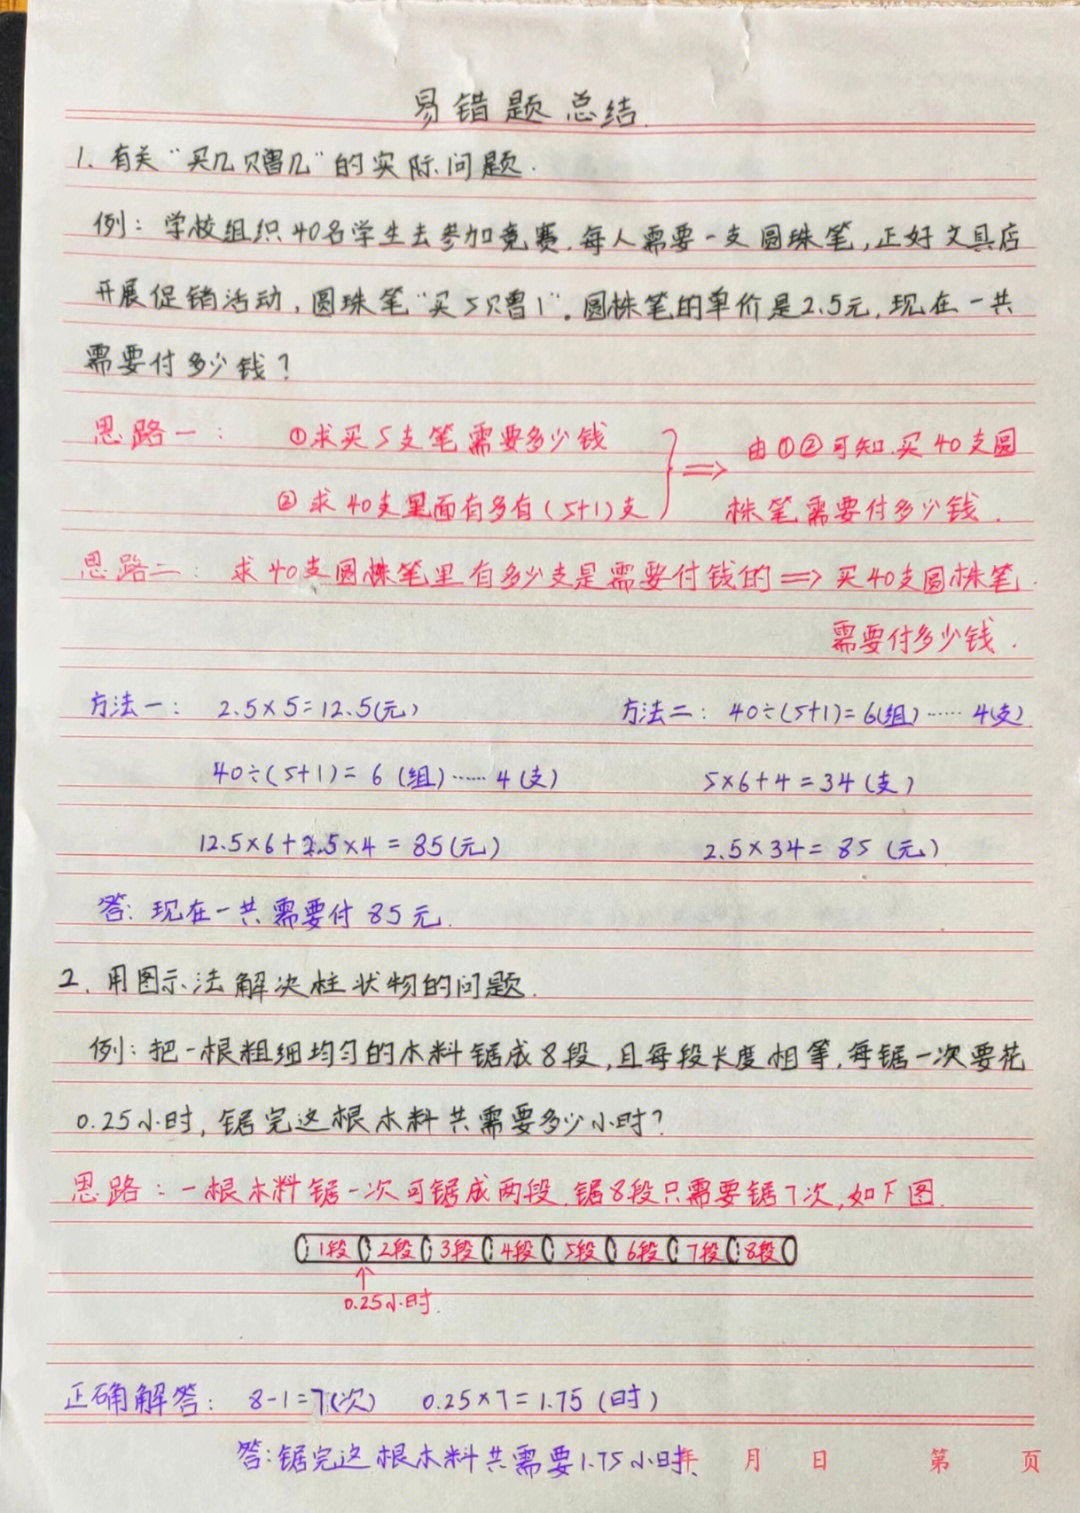 易错题总结.
1. 有关“买几赠几”的实际问题.
例：学校组织40名学生去参加竞赛,每人需要一支圆珠笔,正好文具店
开展促销活动,圆珠笔“买5赠1”。圆株笔的单价是2.5元,现在一共
需要付多少钱?
思路一： ①求买5支笔需要多少钱
②求40支里面有多有(5+1)支
⇒ 由①②可知.买40支圆
株笔需要付多少钱.
思路二：求40支圆株笔里有多少支是需要付钱的⇒买40支圆株笔
需要付多少钱.
方法一： 2.5×5=12.5(元)
40÷(5+1)=6(组)……4(支)
12.5×6+2.5×4=85(元)
方法二：40÷(5+1)=6(组)……4(支)
5×6+4=34(支)
2.5×34=85(元)
答：现在一共需要付85元.
2. 用图示法解决柱状物的问题.
例：把一根粗细均匀的木料锯成8段,且每段长度相等,每锯一次要花
0.25小时,锯完这根木料共需要多少小时?
思路：一根木料锯一次可锯成两段,锯8段只需要锯7次,如下图.
1段 2段 3段 4段 5段 6段 7段 8段
0.25小时.
正确解答： 8-1=7(次) 0.25×7=1.75(时)
答：锯完这根木料共需要1.75小时.
年 月 日 第 页